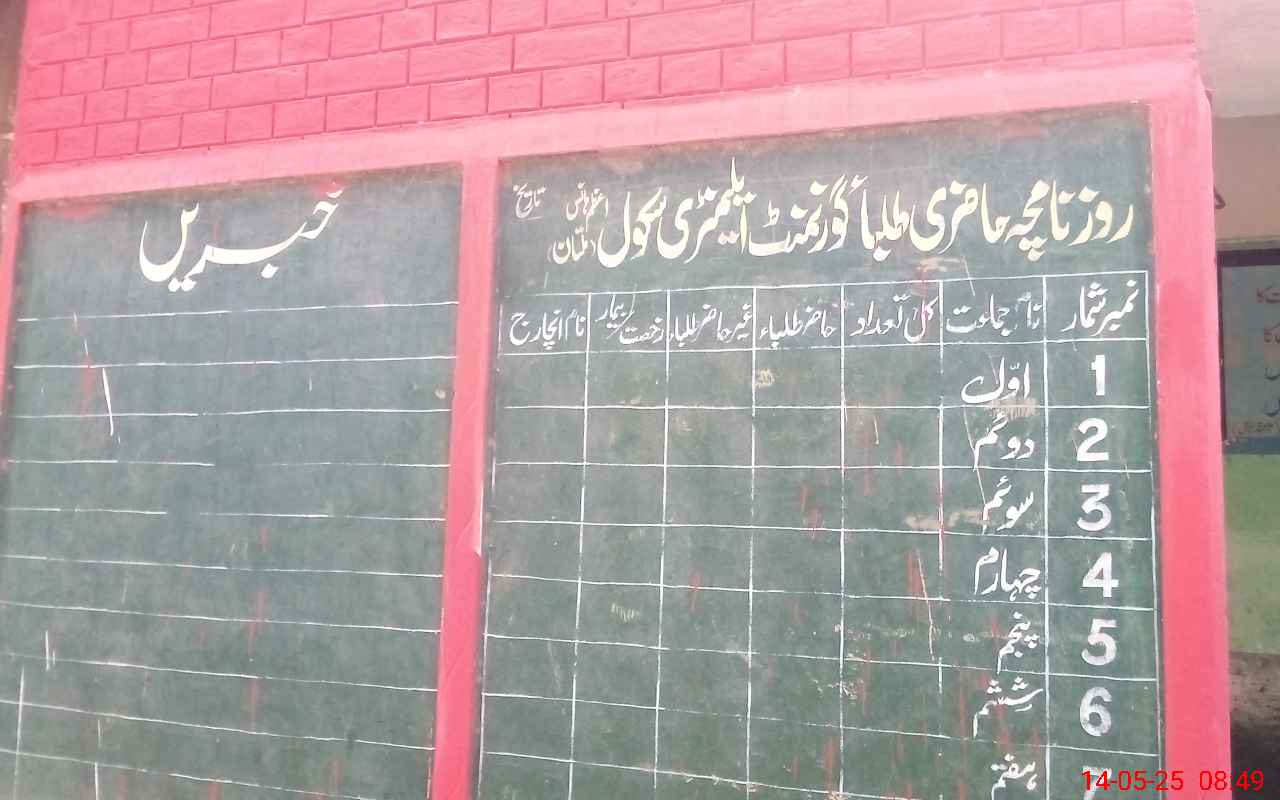 روزنامچہ حاضری طلبأ گورنمنٹ ایلیمنٹری سکول
(ملتان)
تاریخ
نمبر شمار نام جماعت کل تعداد حاضر طلباء غیر حاضر طلباء رخصت / بیمار نام انچارج
1 اوّل
2 دوئم
3 سوئم
4 چہارم
5 پنجم
6 ششم
7 ہفتم
خبریں
14-05-25 08:49